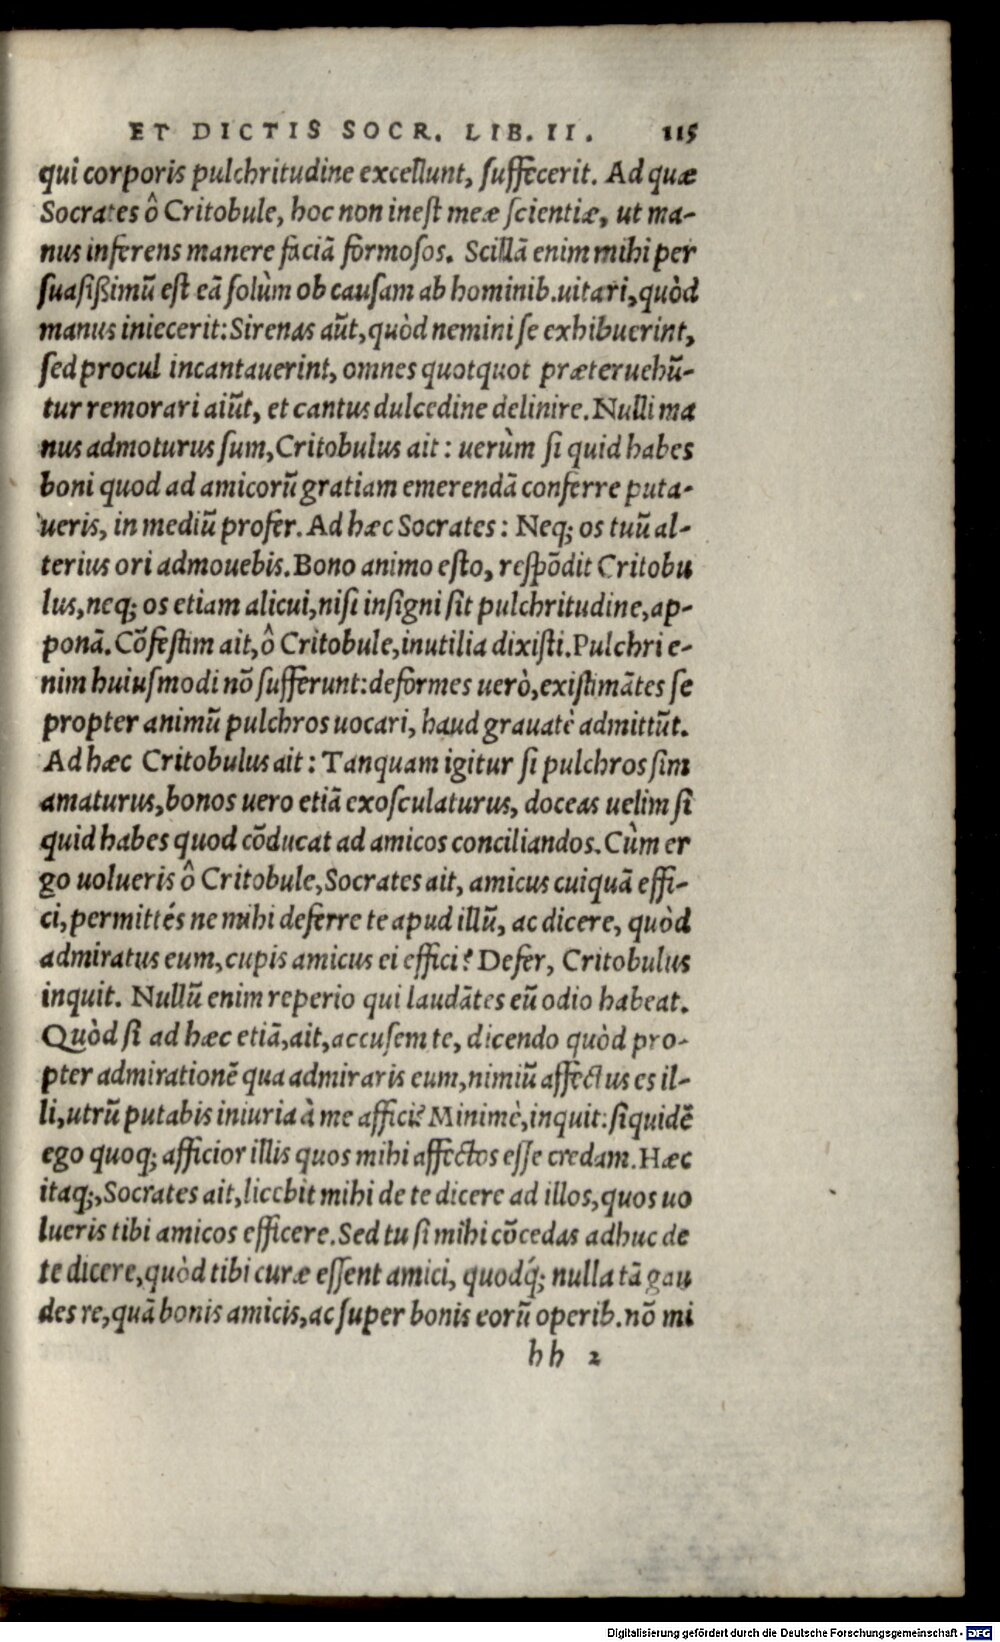 ET DICTIS SOCR. LIB. II. 115
qui corporis pulchritudine excellunt, suffecerit. Ad quæ
Socrates ô Critobule, hoc non inest meæ scientiæ, ut ma-
nus inferens manere faciā formosos. Scillā enim mihi per
suasißimū est eā solùm ob causam ab hominib. uitari, quòd
manus iniecerit: Sirenas aūt, quòd nemini se exhibuerint,
sed procul incantauerint, omnes quotquot præteruehū-
tur remorari aiūt, et cantus dulcedine delinire. Nulli ma
nus admoturus sum, Critobulus ait: uerùm si quid habes
boni quod ad amicorū gratiam emerendā conferre puta-
ueris, in mediū profer. Ad hæc Socrates: Neq; os tuū al-
terius ori admouebis. Bono animo esto, respōdit Critobu
lus, neq; os etiam alicui, nisi insigni sit pulchritudine, ap-
ponā. Cōfestim ait, ô Critobule, inutilia dixisti. Pulchri e-
nim huiusmodi nō sufferunt: deformes uerò, existimātes se
propter animū pulchros uocari, haud grauatè admittūt.
Ad hæc Critobulus ait: Tanquam igitur si pulchros sim
amaturus, bonos uero etiā exosculaturus, doceas uelim si
quid habes quod cōducat ad amicos conciliandos. Cùm er
go uolueris ô Critobule, Socrates ait, amicus cuiquā effi-
ci, permittés ne mihi deferre te apud illū, ac dicere, quòd
admiratus eum, cupis amicus ei effici? Defer, Critobulus
inquit. Nullū enim reperio qui laudātes eū odio habeat.
Quòd si ad hæc etiā, ait, accusem te, dicendo quòd pro-
pter admirationē qua admiraris eum, nimiū affectus es il-
li, utrū putabis iniuria à me affici? Minimè, inquit: siquidē
ego quoq; afficior illis quos mihi affectos esse credam. Hæc
itaq;, Socrates ait, licebit mihi de te dicere ad illos, quos uo
lueris tibi amicos efficere. Sed tu si mihi cōcedas adhuc de
te dicere, quòd tibi curæ essent amici, quodq́; nulla tā gau
des re, quā bonis amicis, ac super bonis eorū operib. nō mi
hh 2
Digitalisierung gefördert durch die Deutsche Forschungsgemeinschaft - DFG